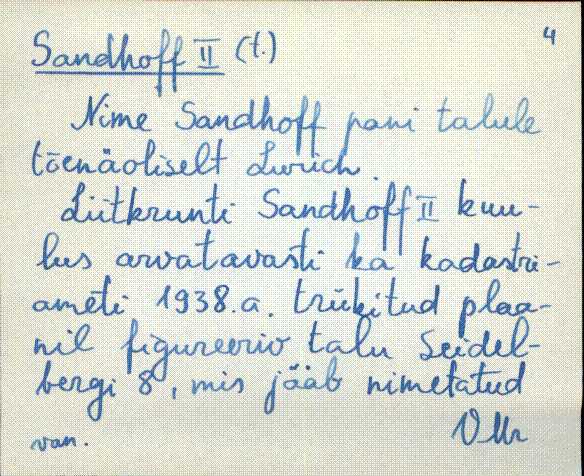 4
Sandhoff II (t.)
Nime Sandhoff pani talule
tõenäoliselt Lurich.
Liitkrunti Sandhoff II kuu-
lus arvatavasti ka kadastri-
ameti 1938.a. trükitud plaa-
nil figureeriv talu Seidel-
bergi 8, mis jääb nimetatud
van.